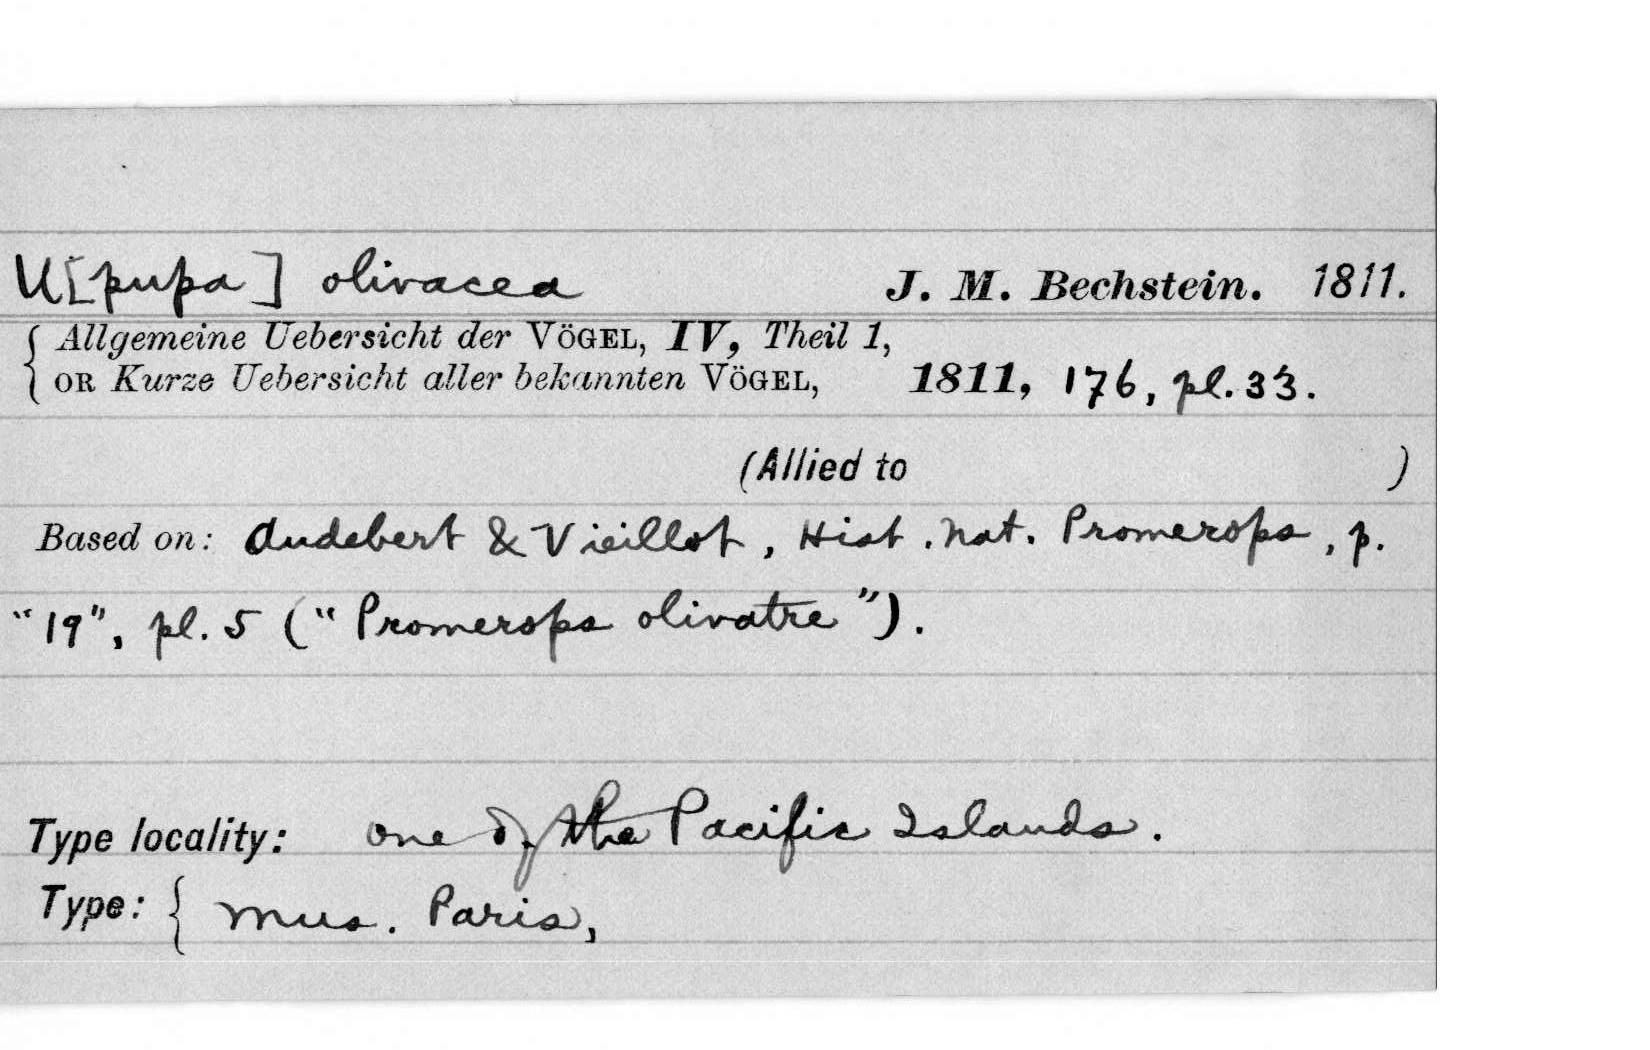 U[pupa] olivacea J. M. Bechstein. 1811.
{ Allgemeine Uebersicht der VÖGEL, IV, Theil 1,
OR Kurze Uebersicht aller bekannten VÖGEL, 1811, 176, pl. 33.
(Allied to )
Based on: Audebert & Vieillot, Hist. Nat. Promerops, p.
"19", pl. 5 ("Promerops olivatre").
Type locality: one of the Pacific Islands.
Type: { Mus. Paris,